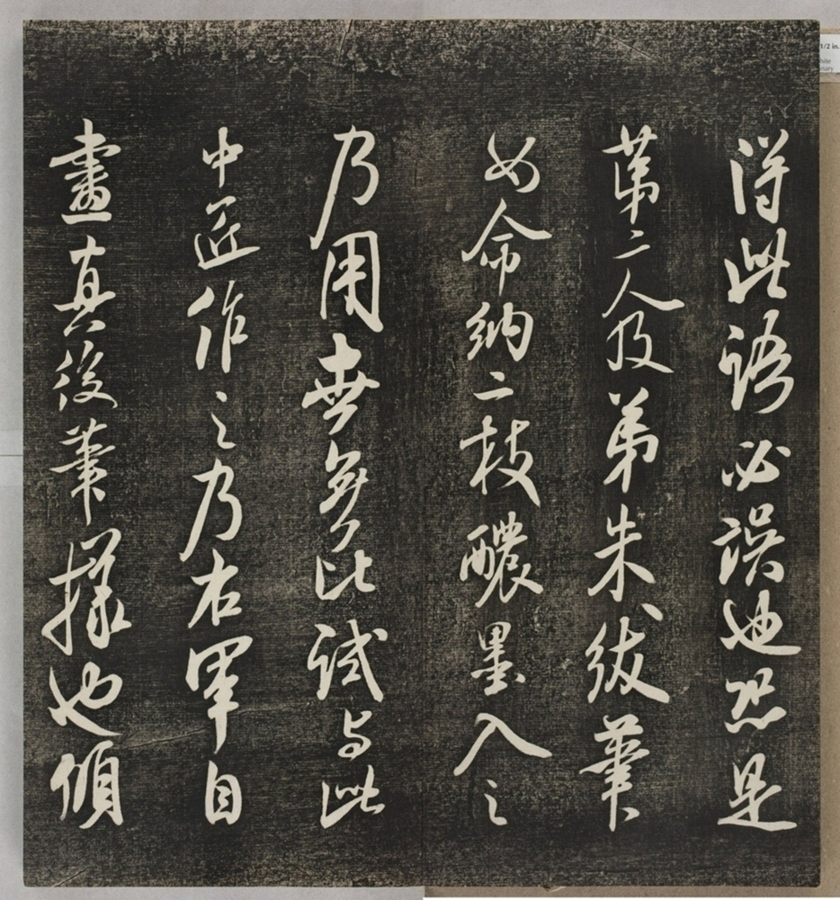 得此語必誤迪恐是
第二人及弟朱紱筆
如命納二枝醲墨入之
乃用世無比試与此
中匠作之乃右軍自
畫真後筆様也傾
1/2 in.